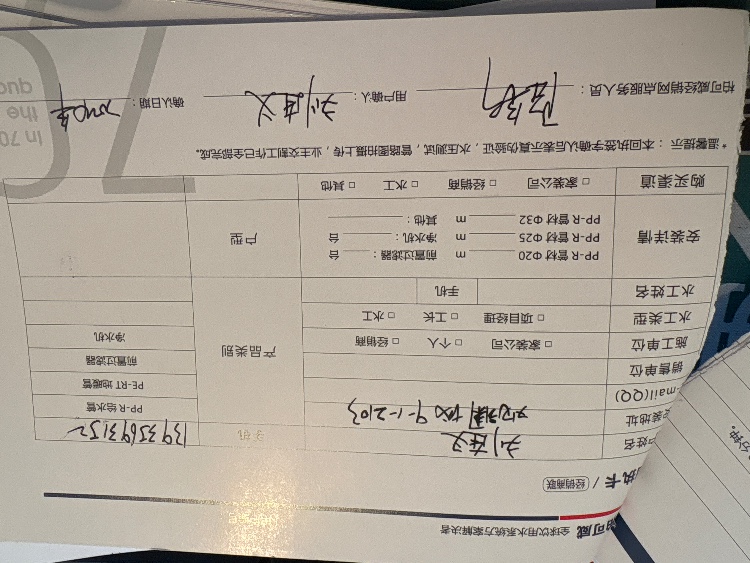 柏可威 全球饮用水系统方案解决者
执卡 / 经销商联
户姓名 手机 13935693152
安装地址 9-1-2103
E-mail(QQ)
销售单位
施工单位 □ 家装公司 □ 个人 □ 经销商
水工类型 □ 项目经理 □ 工长 □ 水工
水工姓名 手机
产品类别
PP-R 给水管
PE-RT 地暖管
前置过滤器
净水机
安装详情
PP-R 管材 Φ20 m 前置过滤器: 台
PP-R 管材 Φ25 m 净水机: 台
PP-R 管材 Φ32 m 其他:
户型
购买渠道 □ 家装公司 □ 经销商 □ 水工 □ 其他
*温馨提示:本回执签字确认后表示真伪验证,水压测试,管路图拍摄上传,业主交割工作已全部完成。
柏可威经销网点服务人员: 用户确认: 确认日期:
In 70
the
quo